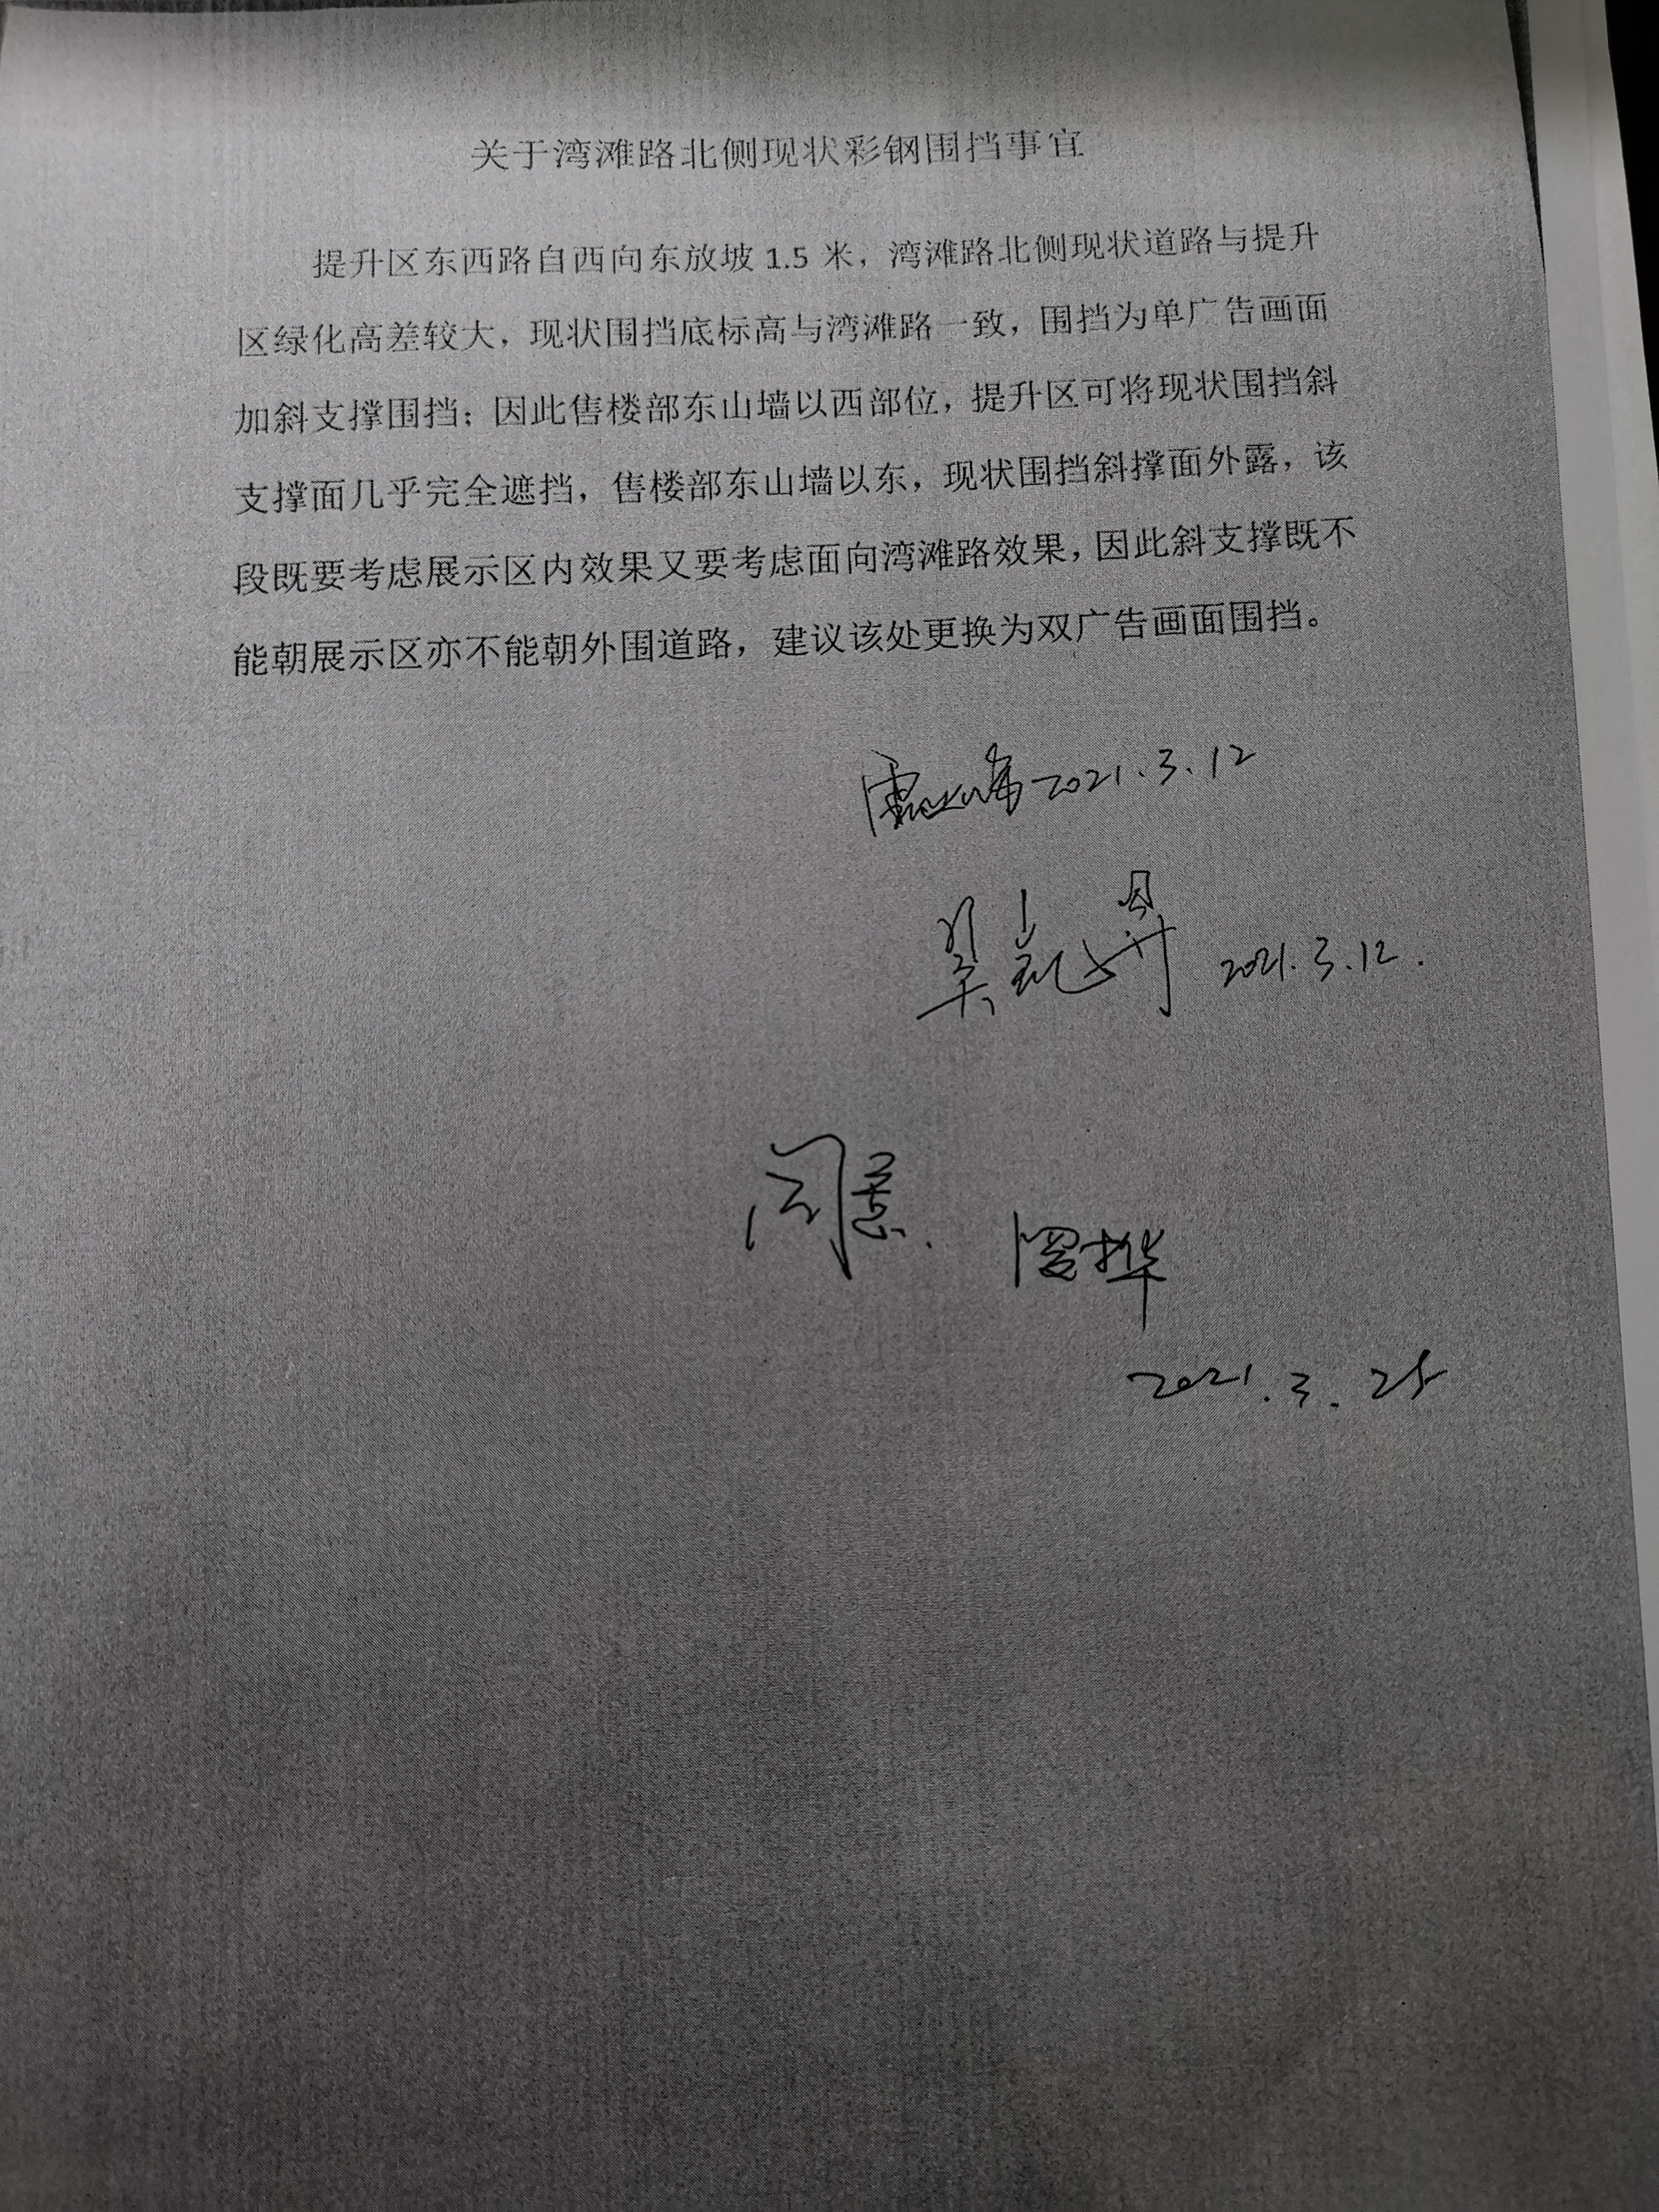 关于湾滩路北侧现状彩钢围挡事宜
提升区东西路自西向东放坡 1.5 米，湾滩路北侧现状道路与提升
区绿化高差较大，现状围挡底标高与湾滩路一致，围挡为单广告画面
加斜支撑围挡；因此售楼部东山墙以西部位，提升区可将现状围挡斜
支撑面几乎完全遮挡，售楼部东山墙以东，现状围挡斜撑面外露，该
段既要考虑展示区内效果又要考虑面向湾滩路效果，因此斜支撑既不
能朝展示区亦不能朝外围道路，建议该处更换为双广告画面围挡。
2021.3.12
2021.3.12.
同意.
2021.3.25